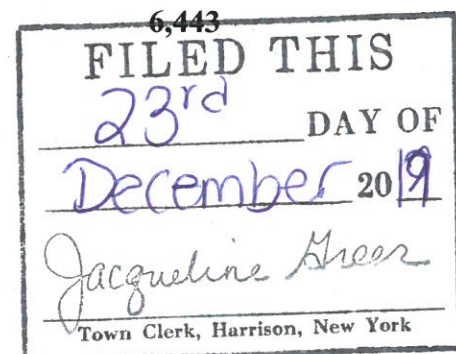 6,443
FILED THIS
23rd DAY OF
December 2019
Jacqueline Greer
Town Clerk, Harrison, New York